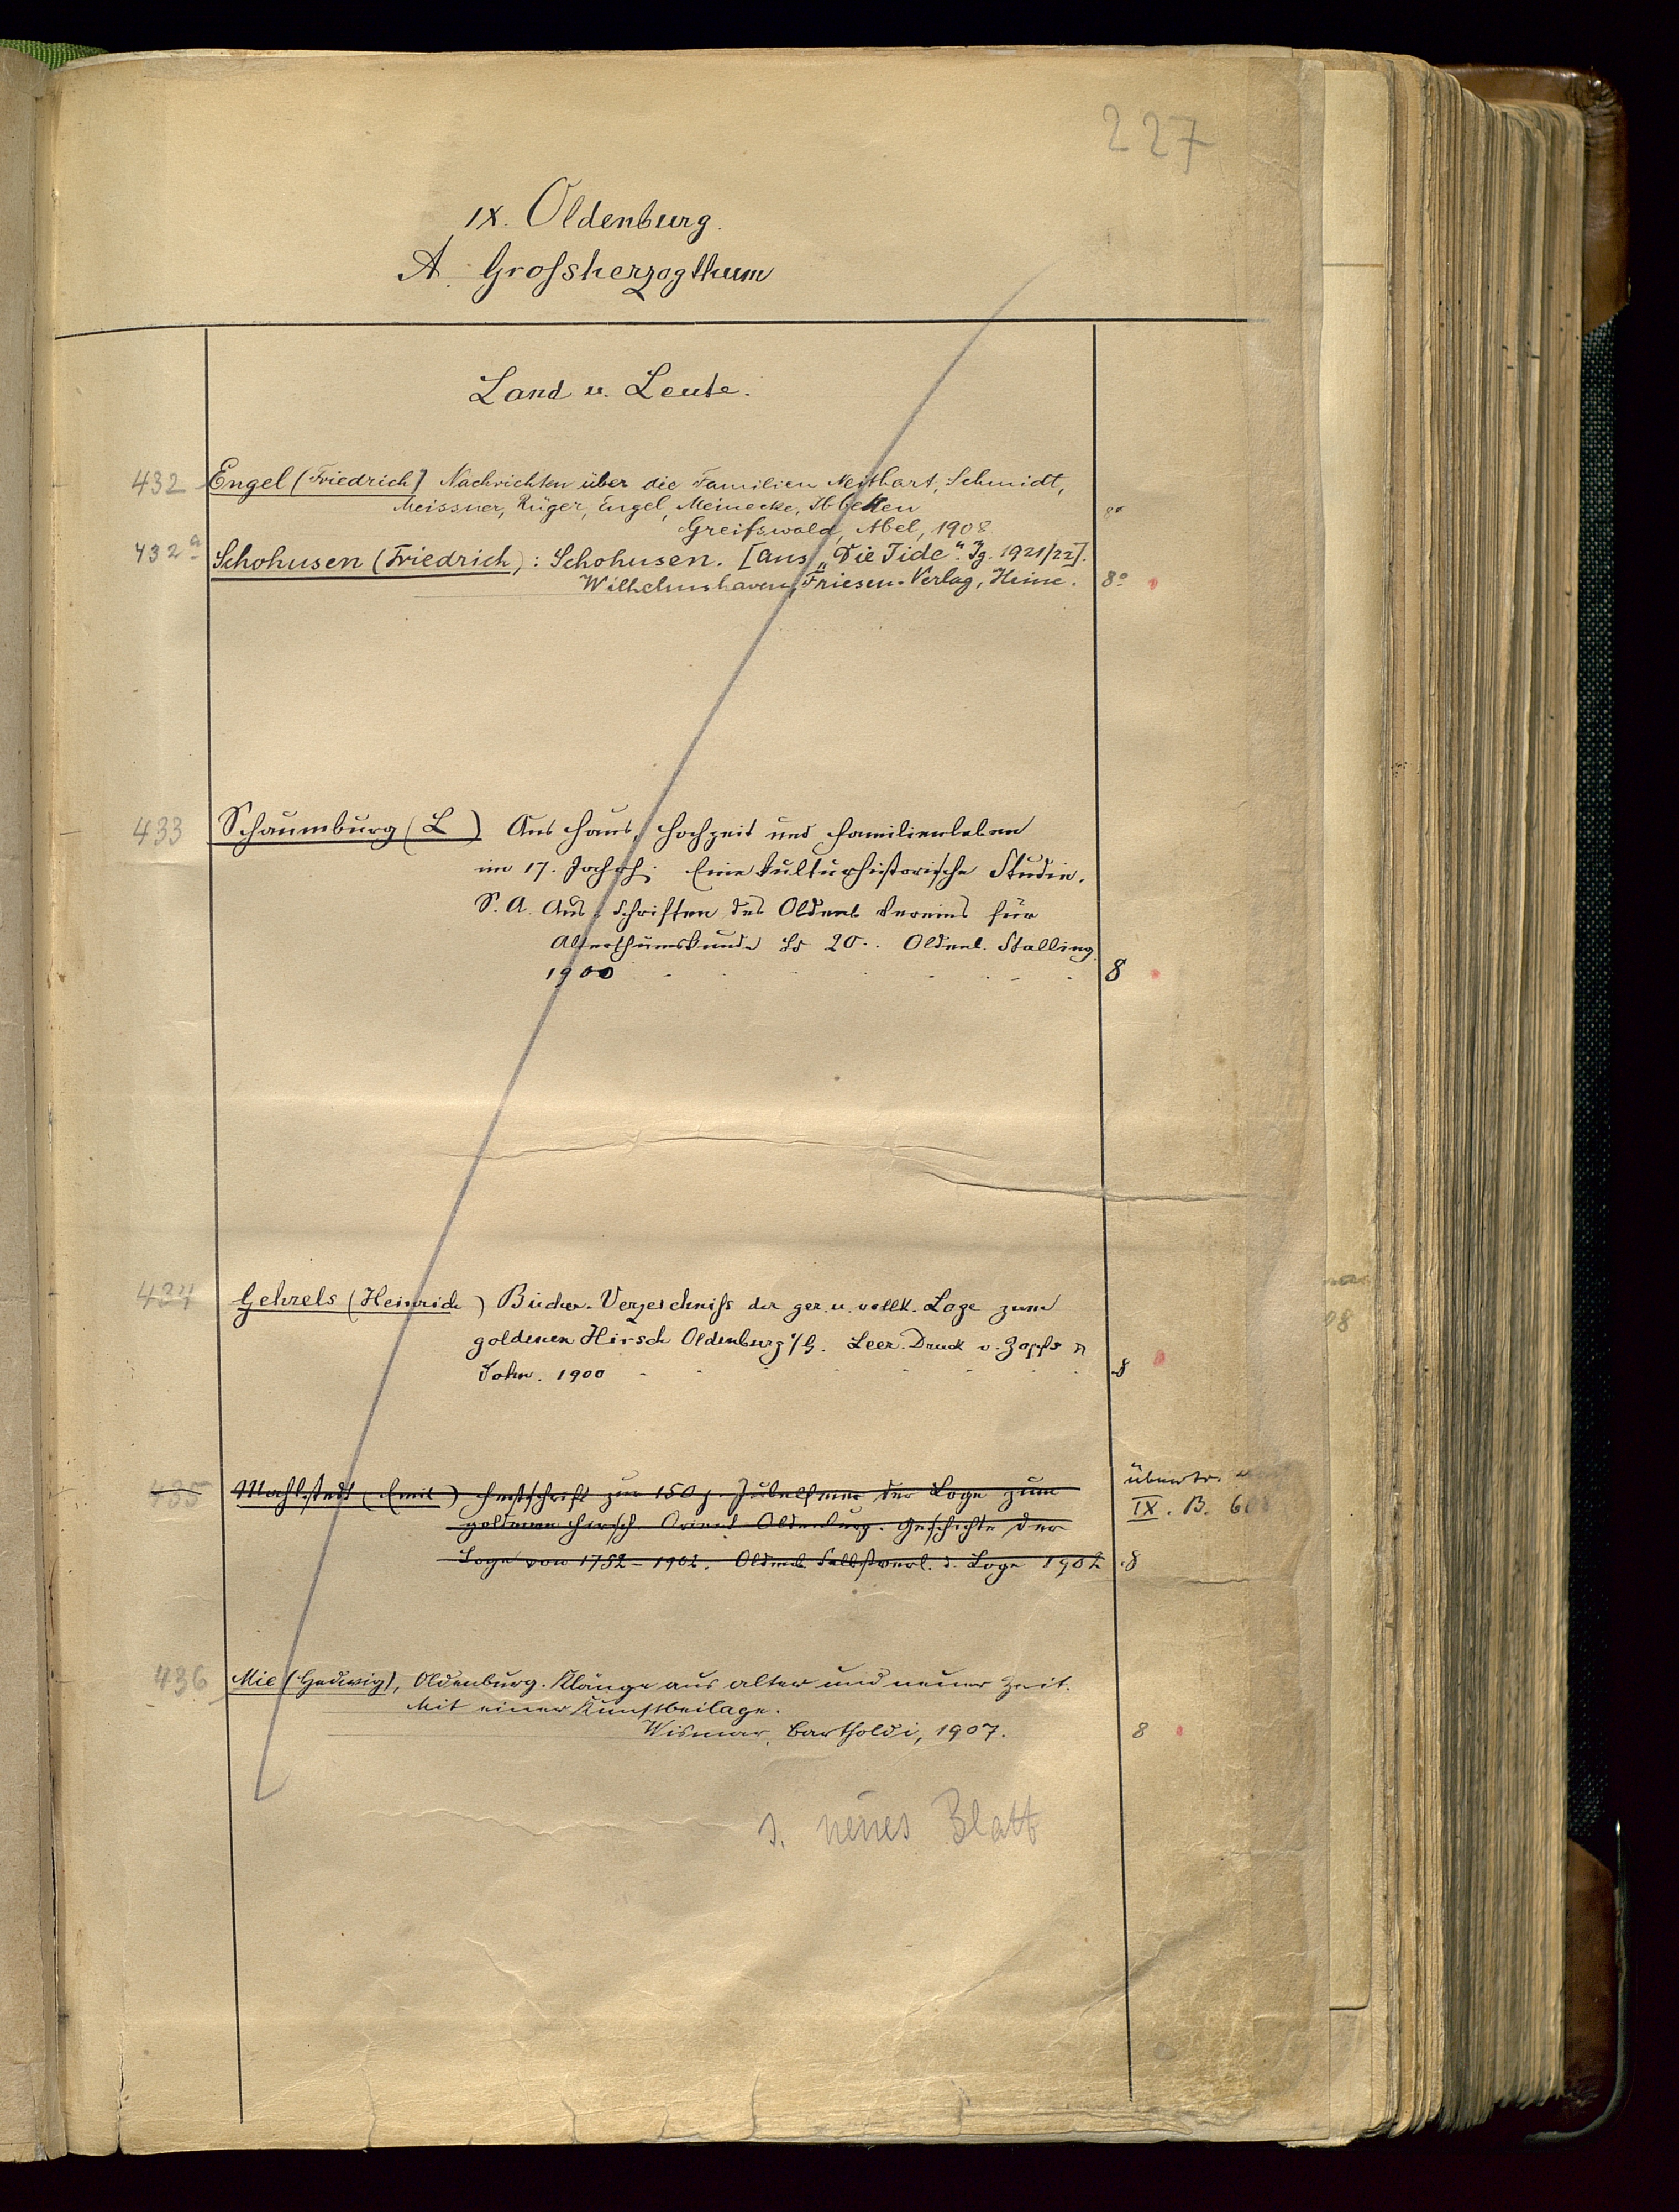 227
IX. Oldenburg.
A. Grossherzogthum
Land u. Leute.
432 Engel (Friedrich) Nachrichten über die Familien Neithart, Schmidt,
Meissner, Rüger, Engel, Meinecke, Ibbeken
Greifswald, Abel, 1908 8°
432a Schohusen (Friedrich): Schohusen. [Aus „Die Tide". Jg. 1921/22].
Wilhelmshaven, Friesen-Verlag, Heine. 8°
433 Schaumburg (L ) Aus Haus, Hochzeit und Familienleben
im 17. Jahrh: Eine kulturhistorische Studie.
S. A. Aus: Schriften des Oldenb Vereins für
Alterthumskunde Bd 20. Oldenb. Stalling
1900 8
434 Gehrels (Heinrich ) Bücher-Verzeichniss der ger. u. vollk. Loge zum
goldenen Hirsch Oldenburg i/G. Leer. Druck v. Zopfs &
Sohn. 1900 8
435 Mahlstedt (Emil) Festschrift zur 150 j. Jubelfeier der Loge zum
goldenen Hirsch Orient Oldenburg. Geschichte der
Loge von 1752-1902. Oldenb. Selbstverl. d. Loge 1902 8
übertr.
IX. B.
436 Mie (Hedwig), Oldenburg. Klänge aus alter und neuer Zeit.
Mit einer Kunstbeilage.
Wismar, Bartholdi, 1907. 8
s. neues Blatt